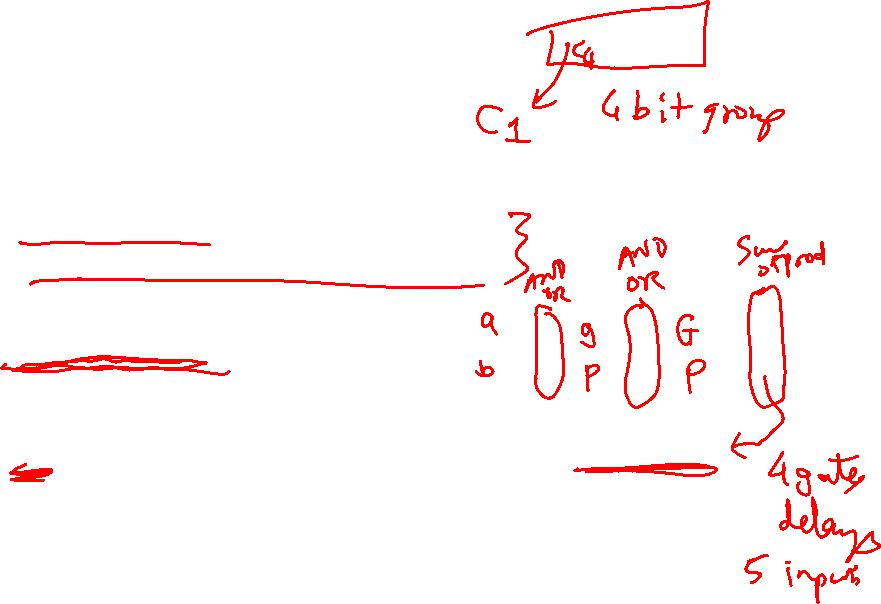 C4
C1
4 bit group
AND OR
AND OR
Sum of prod
a
g
G
b
p
P
4 gates
delays
5 inputs